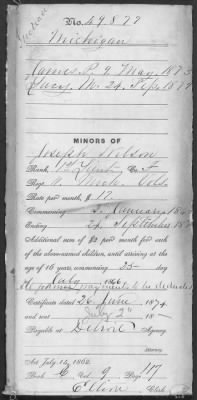 No. 49877
Michigan
James P. 9 May, 1873
Lucy M. 24 Sep, 1879
MINORS OF
Joseph
Rank, Co. F
Regt. Mich. Vols.
Rate per month, $ 17.
Commencing 3 January 18
Ending 24 September 18
Additional sum of $2 per month for each
of the above-named children, until arriving at the
age of 16 years, commencing 25 day
July 1866.
payments to be deducted
Certificate dated 26 June 1874
and sent July 2" 18
Payable at Detroit Agency.
Attorney.
Act July 14, 1862.
Book Vol. 9 Page 117
Clerk